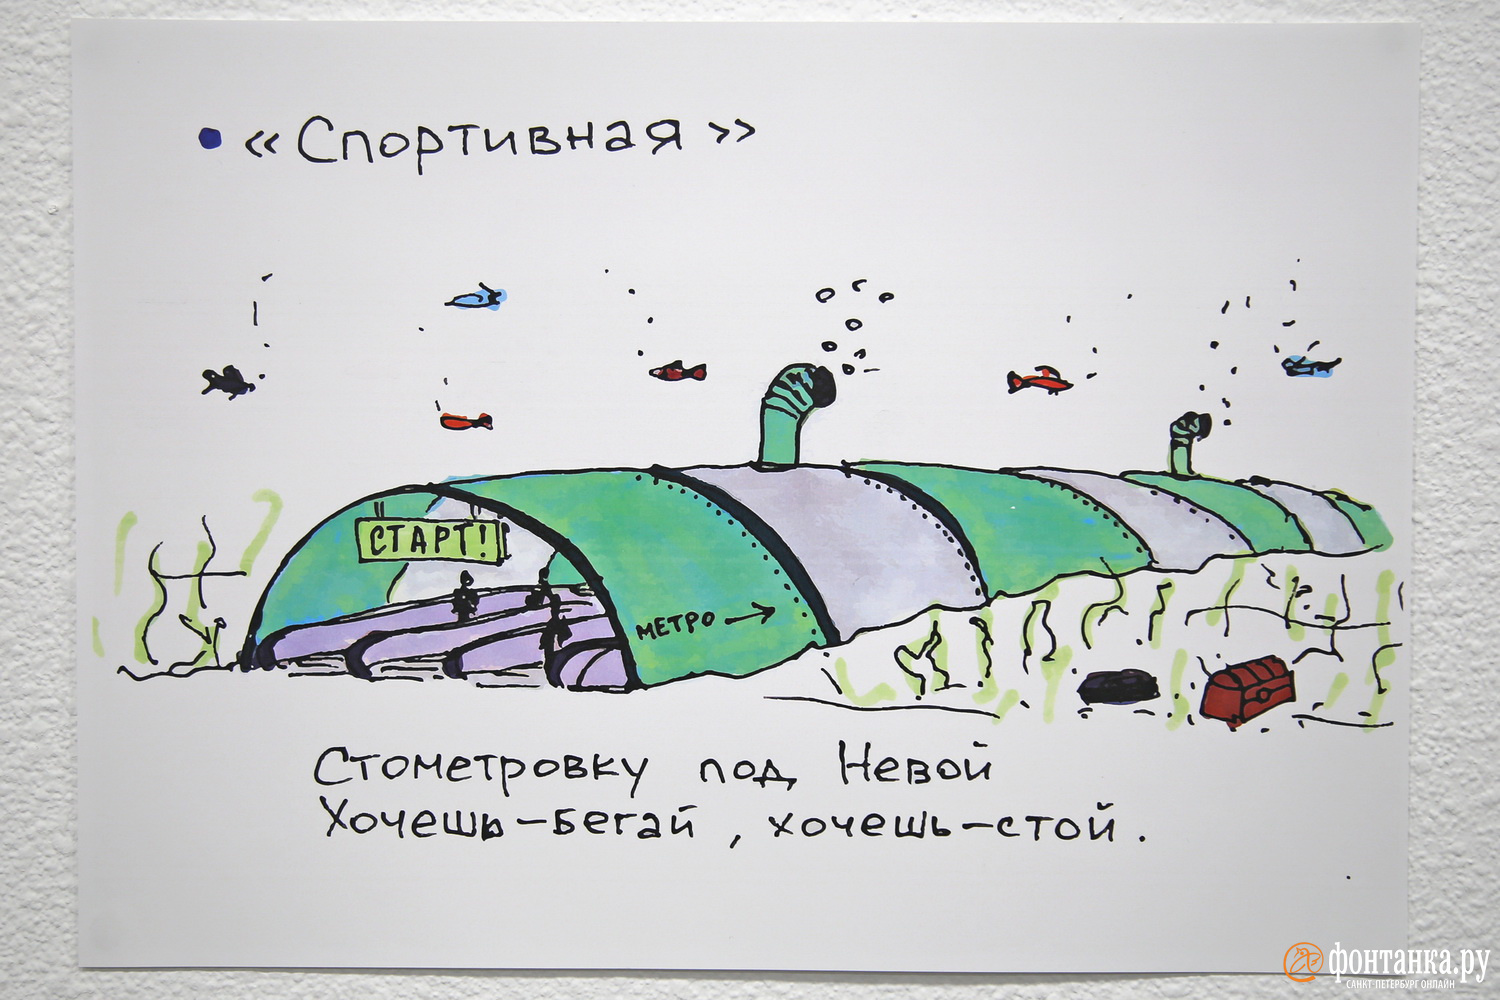 • «Спортивная»
СТАРТ!
МЕТРО →
Стометровку под Невой
Хочешь-бегай, хочешь-стой.
фонтанка.ру
САНКТ-ПЕТЕРБУРГ ОНЛАЙН